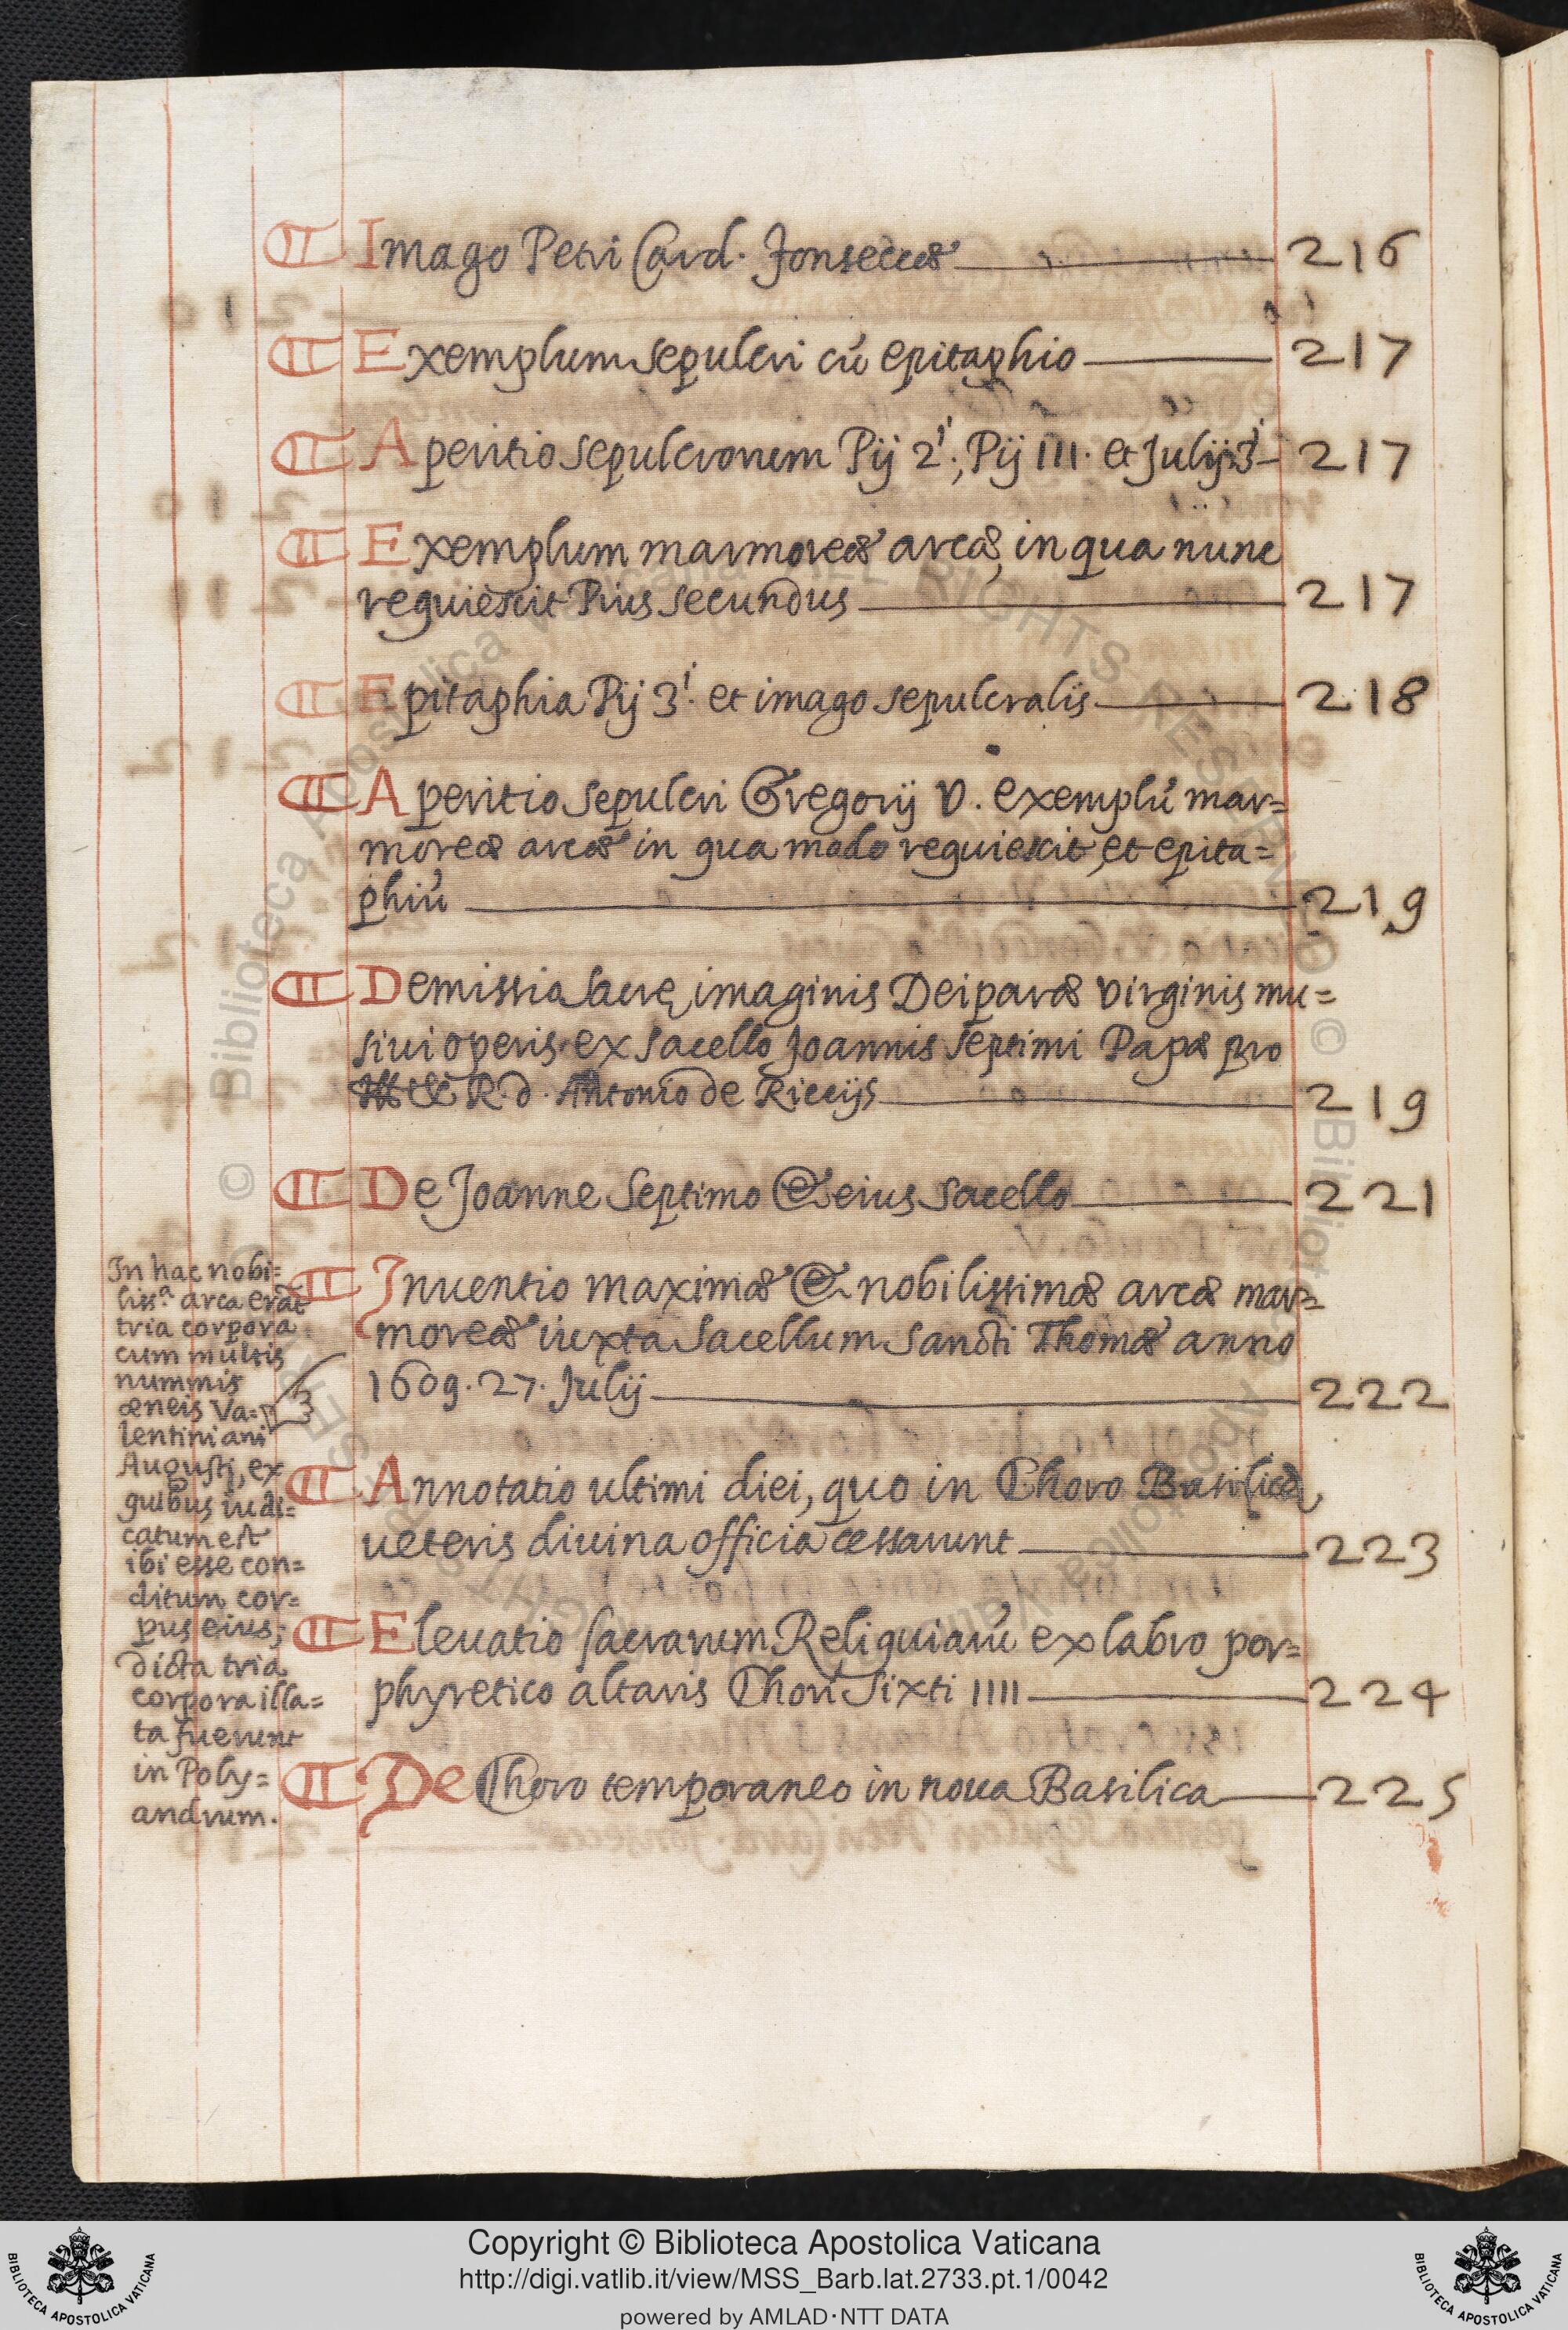 ¶ Imago Petri Card. Fonsecæ 216
¶ Exemplum sepulcri cū epitaphio 217
¶ Aperitio sepulcrorum Pij 2i., Pij III. et Julij 3i 217
¶ Exemplum marmoreæ arcæ, in qua nunc
requiescit Pius secundus 217
¶ Epitaphia Pij 3i. et imago sepulcralis 218
¶ Aperitio sepulcri Gregorij V. exemplū mar=
moreæ arcæ in qua modo requiescit, et epita=
phiū 219
¶ Demissio sacrę imaginis Deiparæ virginis mu=
siui operis ex sacello Joannis septimi Papæ pro
R. d. Antonio de Riccijs 219
¶ De Joanne Septimo & eius sacello 221
¶ Inuentio maximæ & nobilissimæ arcæ mar=
moreæ iuxta sacellum sancti Thomæ anno
1609. 27. Julij 222
¶ Annotatio ultimi diei, quo in Choro Basilicæ
ueteris diuina officia cessarunt 223
¶ Eleuatio sacrarum Reliquiarū ex labro por=
phyretico altaris Chori Sixti IIII 224
¶ De Choro temporaneo in noua Basilica 225
In hac nobi=
liss.a arca erāt
tria corpora
cum multis
nummis
æneis Va=
lentiniani
Augusti, ex
quibus iudi=
catum est
ibi esse con=
ditum cor=
pus eius;
dicta tria
corpora illa=
ta fuerunt
in Poly=
andrum.
© Biblioteca Apostolica Vaticana ALL RIGHTS RESERVED
Copyright © Biblioteca Apostolica Vaticana
http://digi.vatlib.it/view/MSS_Barb.lat.2733.pt.1/0042
powered by AMLAD·NTT DATA
BIBLIOTECA APOSTOLICA VATICANA
BIBLIOTECA APOSTOLICA VATICANA